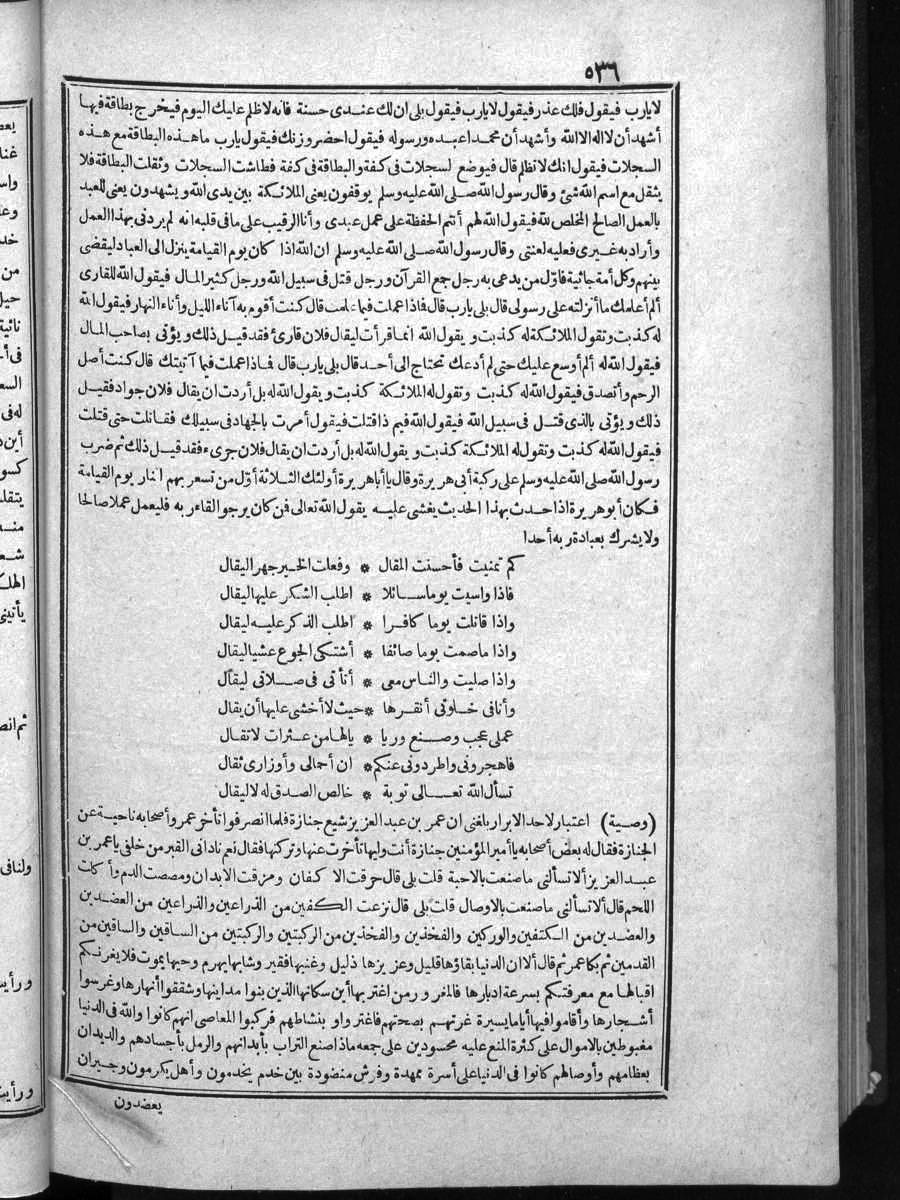 ٥٣٦
لا يارب فيقول فلك عذر فيقول لا يارب فيقول بلى ان لك عندى حسنة فانه لا ظلم عليك اليوم فيخرج بطاقة فيها
أشهد أن لا اله الا الله وأشهد أن محمدا عبده ورسوله فيقول احضر وزنك فيقول يارب ما هذه البطاقة مع هذه
السجلات فيقول انك لا تظلم قال فيوضع لسجلات فى كفة والبطاقة فى كفة فطاشت السجلات وثقلت البطاقة فلا
يثقل مع اسم الله شئ وقال رسول الله صلى الله عليه وسلم يوقفون يعنى الملائكة بين يدى الله ويشهدون يعنى للعبد
بالعمل الصالح المخلص لله فيقول الله لهم أنتم الحفظة على عمل عبدى وأنا الرقيب على ما فى قلبه انه لم يردنى بهذا العمل
وأراد به غيرى فعليه لعنتى وقال رسول الله صلى الله عليه وسلم ان الله اذا كان يوم القيامة ينزل الى العباد ليقضى
بينهم وكل أمة جاثية فاوّل من يدعى به رجل جمع القرآن ورجل قتل فى سبيل الله ورجل كثير المال فيقول الله للقارى
ألم أعلمك ما أنزلته على رسولى قال بلى يارب قال فماذا عملت فيما علمت قال كنت أقوم به آناء الليل وأناء النهار فيقول الله
له كذبت وتقول الملائكة له كذبت و يقول الله انما قرأت ليقال فلان قارئ فقد قيل ذلك ويؤتى بصاحب المال
فيقول الله له ألم أوسع عليك حتى لم أدعك تحتاج الى أحد قال بلى يارب قال فماذا عملت فيما آتيتك قال كنت أصل
الرحم وأتصدق فيقول الله له كذبت وتقول له الملائكة كذبت و يقول الله له بل أردت ان يقال فلان جواد فقيل
ذلك و يؤتى بالذى قتل فى سبيل الله فيقول الله فيم ذا قتلت فيقول أمرت بالجهاد فى سبيلك فقاتلت حتى قتلت
فيقول الله له كذبت وتقول له الملائكة كذبت و يقول الله له بل أردت ان يقال فلان جرىء فقد قيل ذلك ثم ضرب
رسول الله صلى الله عليه وسلم على ركبة أبى هريرة وقال يا أبا هريرة أولئك الثلاثة أوّل من تسعر بهم النار يوم القيامة
فكان أبو هريرة اذا حدث بهذا الحديث يغشى عليه يقول الله تعالى فمن كان يرجو القاء ربه فليعمل عملا صالحا
ولا يشرك بعبادة ربه أحدا
كم تمنيت فأحسنت المقال * وفعلت الخير جهرا ليقال
فاذا واسيت يوما سائلا * اطلب الشكر عليها ليقال
واذا قاتلت يوما كافرا * اطلب الذكر عليه ليقال
واذا ما صمت يوما صائفا * أشتكى الجوع عشيا ليقال
واذا صليت والناس معى * أتأتى فى صلاتى ليقال
وأنا فى خلوتى أنقرها * حيث لا أخشى عليها أن يقال
عملى عجب وصنع وريا * يالها من عثرات لا تقال
فاهجرونى واطردونى عنكم * ان أحمالى وأوزارى ثقال
تسأل الله تعالى توبة * خالص الصدق له لا ليقال
(وصية) اعتبار لاحد الابرار بلغنى ان عمر بن عبد العزيز شيع جنازة فلما انصرفوا تأخر عمر وأصحابه ناحية عن
الجنازة فقال له بعض أصحابه يا أمير المؤمنين جنازة أنت وليها تأخرت عنها وتركتها فقال نعم نادانى القبر من خلفى يا عمر بن
عبد العزيز ألا تسألنى ما صنعت بالاحبة قلت بلى قال حرقت الاكفان ومزقت الابدان ومصصت الدم وأكلت
اللحم قال ألا تسألنى ما صنعت بالاوصال قلت بلى قال نزعت الكفين من الذراعين والذراعين من العضدين
والعضدين من الكتفين والوركين والفخذين والفخذين من الركبتين والركبتين من الساقين والساقين من
القدمين ثم بكا عمر ثم قال ألا ان الدنيا بقاؤها قليل وعزيزها ذليل وغنيها فقير وشابها يهرم وحيها يموت فلا يغرنكم
اقبالها مع معرفتكم بسرعة ادبارها فالمغرور من اغتر بها أين سكانها الذين بنوا مداينها وشققوا أنهارها وغرسوا
أشجارها وأقاموا فيها أياما يسيرة غرتهم بصحتهم فاغتروا و بنشاطهم فركبوا المعاصى انهم كانوا والله فى الدنيا
مغبوطين بالاموال على كثرة المنع عليه محسودين على جمعه ماذا صنع التراب بأبدانهم والرمل بأجسادهم والديدان
بعظامهم وأوصالهم كانوا فى الدنيا على أسرة ممهدة وفرش منضودة بين خدم يخدمون وأهل يكرمون وجيران
يعضدون